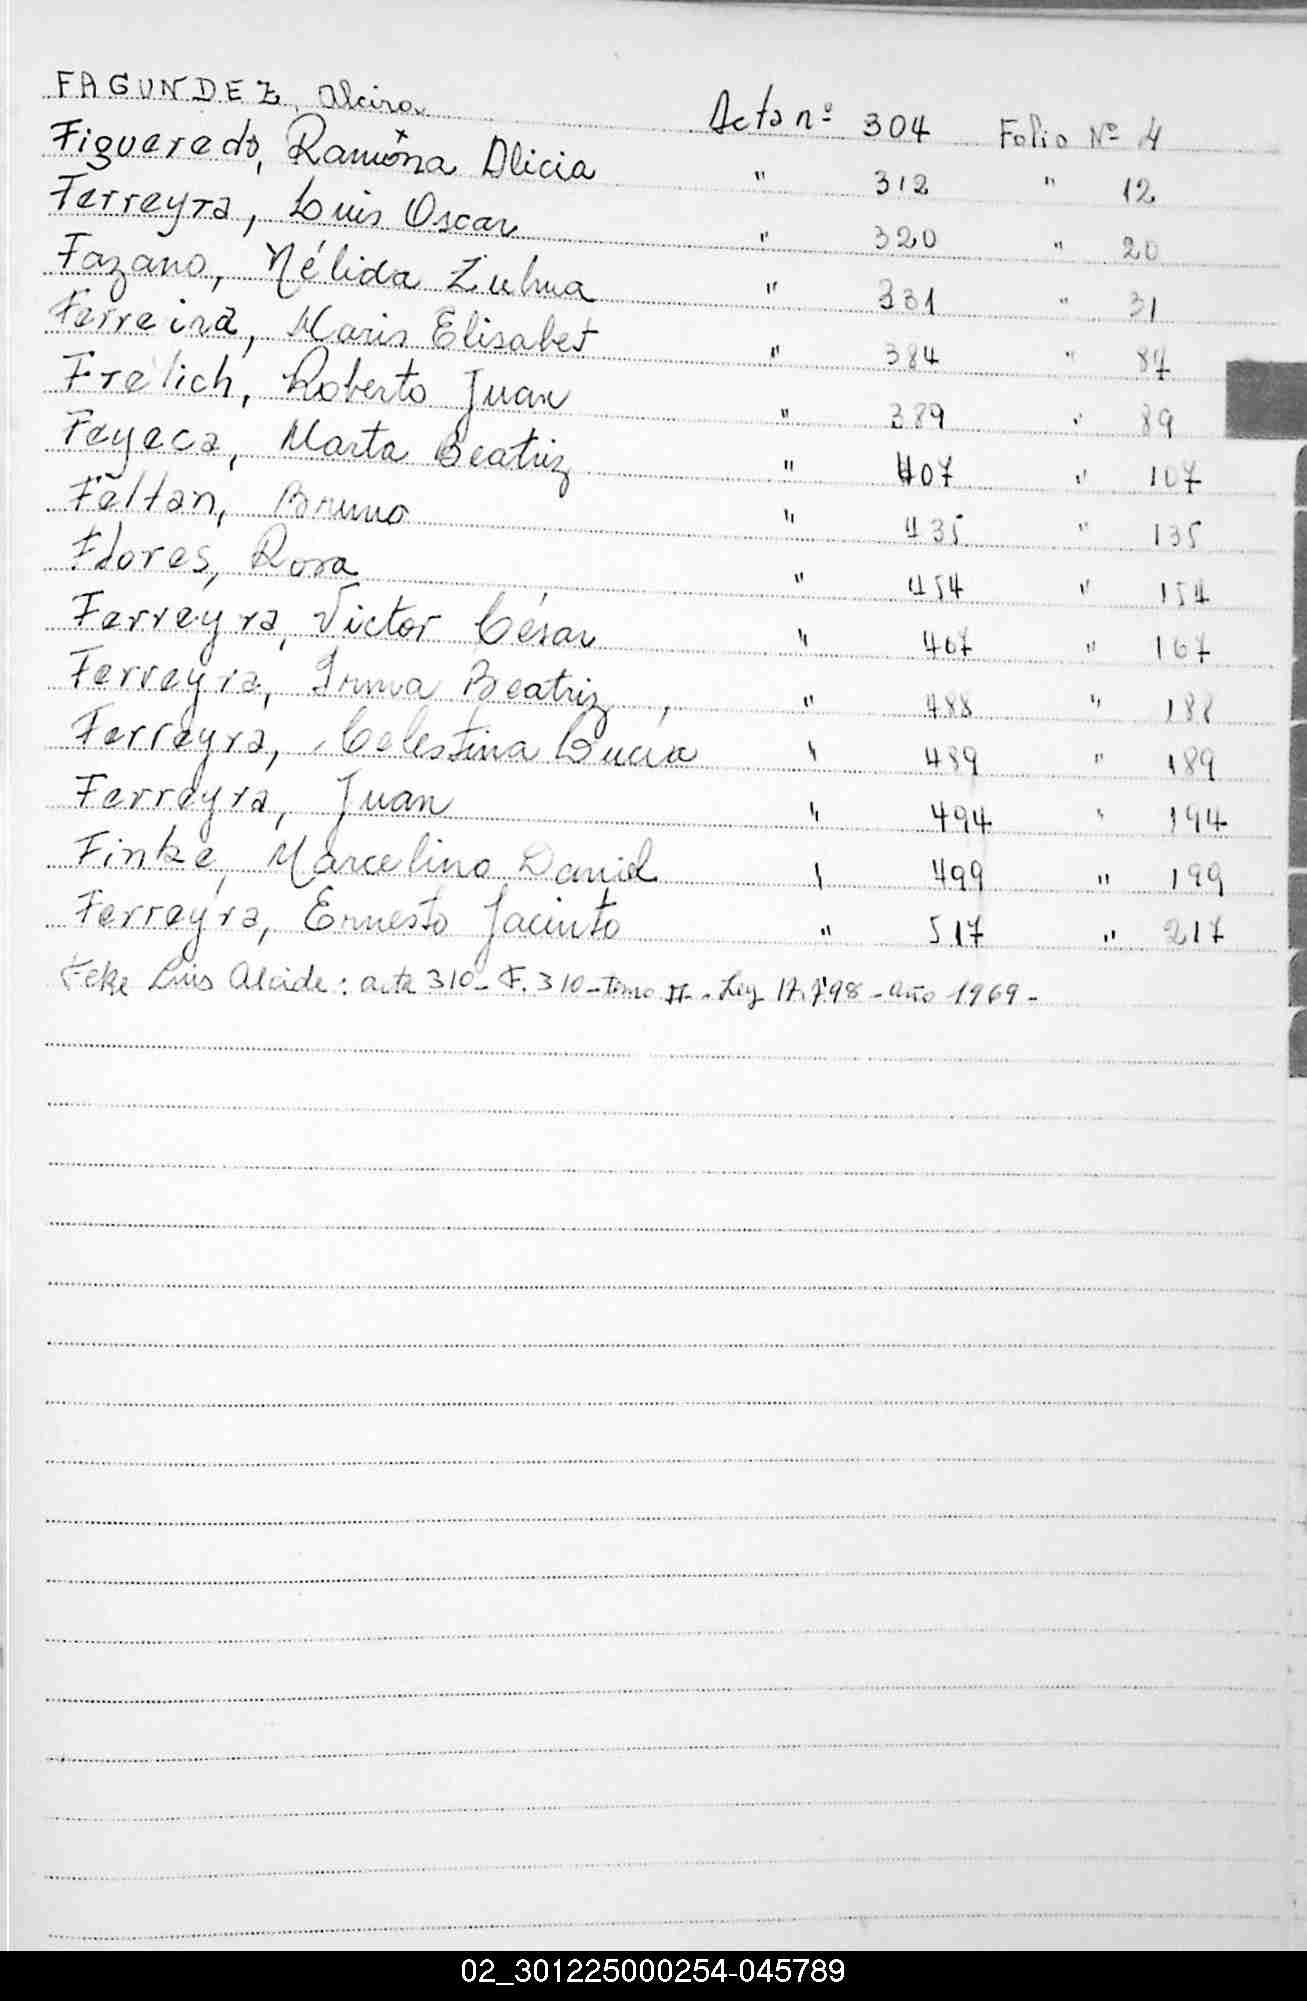 FAGUNDEZ, Alcira Acta nº 304 Folio Nº 4
Figueredo, Ramona Alicia " 312 " 12
Ferreyra, Luis Oscar " 320 " 20
Fazano, Nélida Zulma " 331 " 31
Ferreira, Maris Elisabet " 384 " 84
Frelich, Roberto Juan " 389 " 89
Feyeca, Marta Beatriz " 407 " 107
Feltan, Bruno " 435 " 135
Flores, Rosa " 454 " 154
Ferreyra, Victor César " 467 " 167
Ferreyra, Irma Beatriz " 488 " 188
Ferreyra, Celestina Lucía " 489 " 189
Ferreyra, Juan " 494 " 194
Finke, Marcelino Daniel " 499 " 199
Ferreyra, Ernesto Jacinto " 517 " 217
Feke Luis Alcide: acta 310 - F. 310 - tomo II - Ley 17.798 - año 1969 -
02_301225000254-045789